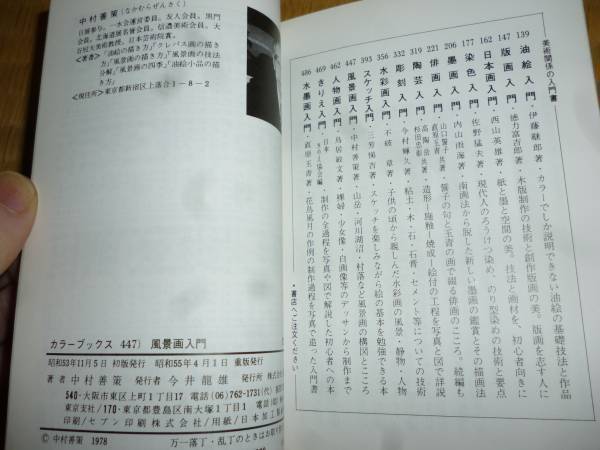 中村善策（なかむらぜんさく）
日展参与。一水会運営委員。友人会員。黒門
会員。北海道展名誉会員。信濃美術会員。大
谷短大美術教授。日本芸術院賞。
<著書>「油絵の描き方」「クレパス画の描き
方」「風景画の描き方」「風景画の技法
分解」「風景画の四季」「油絵小品の描
き方」
<現住所>東京都新宿区上落合1-8-2
カラーブックス 447） 風景画入門
昭和53年11月5日 初版発行 昭和55年4月1日 重版発行
著者 中村善策 発行者 今井龍雄 発行所
540・大阪市東区上町1丁目17 電話(06)762-1731(代)
東京支社/170・東京都豊島区南大塚1丁目1
印刷/セブン印刷株式会社/用紙/日本加工製
© 中村善策 1978 万一落丁・乱丁のときはお取
美術関係の入門書
139 油絵入門・伊藤継郎著・カラーでしか説明できない油絵の基礎技法と作品
147 版画入門・徳力富吉郎著・木版制作の技術と創作版画の美。版画を志す人に
162 日本画入門・西山英雄著・紙と墨と空間の美。技法と画材を、初心者向きに
177 染色入門・佐野猛夫著・現代人のろうけつ染め、のり型染めの技術と要点
206 墨画入門・内山雨海著・南画法から脱した新しい墨画の鑑賞とその描画法
221 俳画入門・山口誓子・直原玉青共著・誓子の句と玉青の画で綴る俳画のこころ。続編も
319 陶芸入門・高陶岳・杉田忠衛共著・造形―施釉―焼成―絵付の工程を写真と図で詳説
332 彫刻入門・今村輝久著・粘土・木・石・石膏・セメント等についての技術
356 水彩画入門・不破章著・子供の頃から親しんだ水彩画の風景・静物・人物
393 スケッチ入門・三芳悌吉著・スケッチを楽しみながら絵の基本を勉強できる本
447 風景画入門・中村善策著・山岳・河川湖沼・村落など風景画の構図とこころ
462 人物画入門・鳥居敏文著・裸婦・少女像・自画像等のデッサンから制作まで
469 きりえ入門・日本きりえ協会編・制作の全過程を写真や図で解説した初心者への本
486 水墨画入門・直原玉青著・花鳥風月の作例の制作過程を写真で追った入門書
・書店へご注文ください